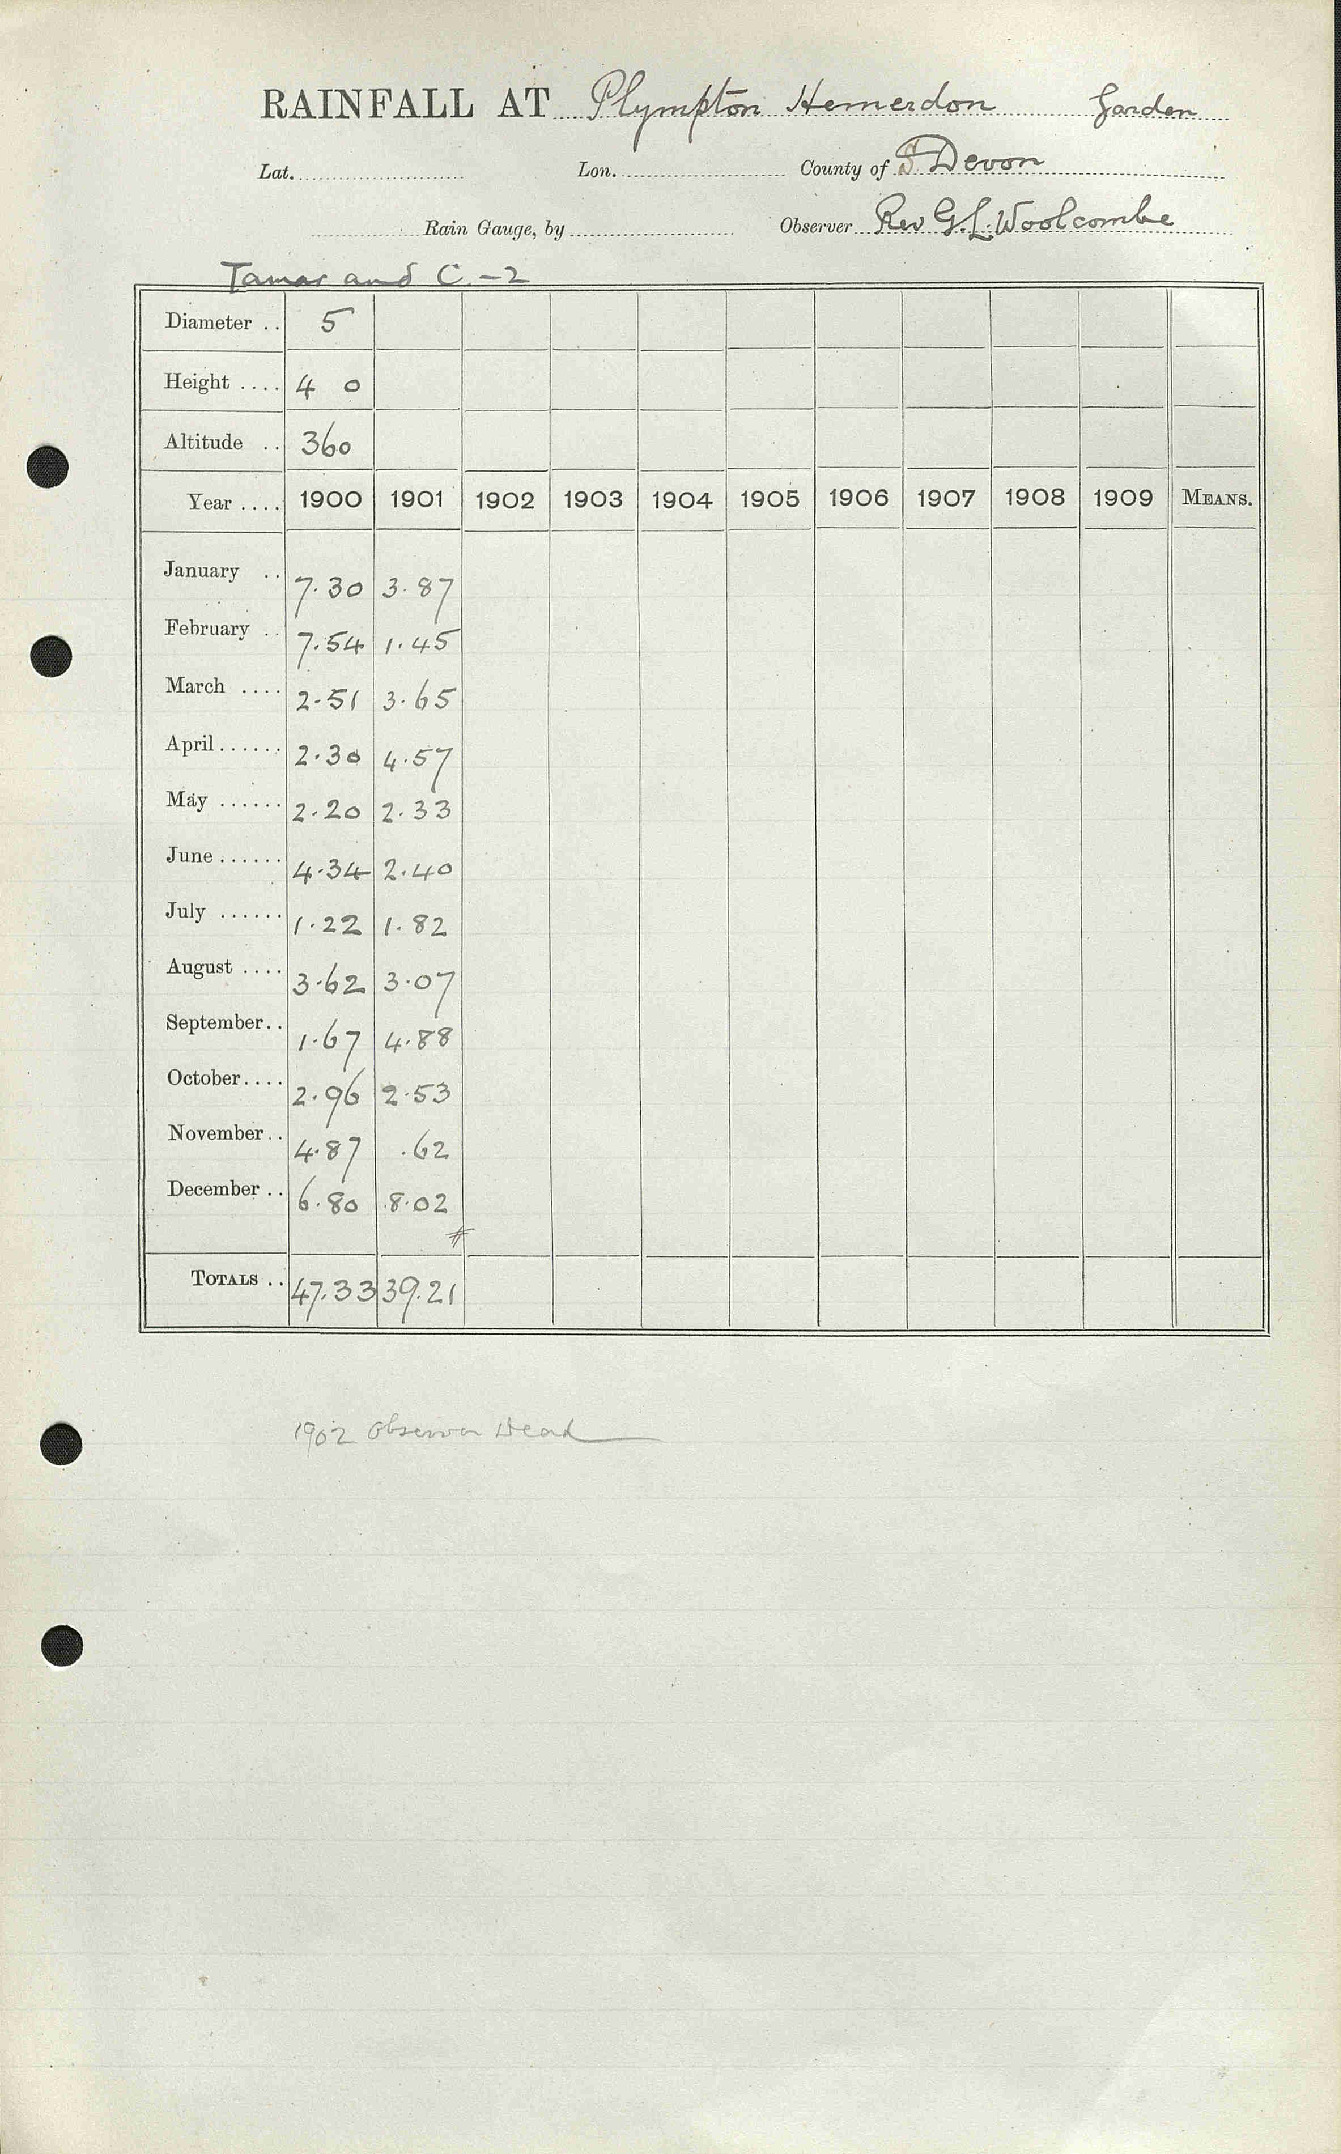 RAINFALL AT Plympton Hemerdon Garden
Lat. Lon. County of S. Devon
Rain Gauge, by Observer Rev G. L. Woolcombe
Tamar and C.-2
Diameter .. 5
Height .... 4 0
Altitude .. 360
Year .... 1900 1901 1902 1903 1904 1905 1906 1907 1908 1909 MEANS.
January .. 7.30 3.87
February .. 7.54 1.45
March .... 2.51 3.65
April ...... 2.30 4.57
May ...... 2.20 2.33
June ...... 4.34 2.40
July ...... 1.22 1.82
August .... 3.62 3.07
September .. 1.67 4.88
October .... 2.96 2.53
November .. 4.87 .62
December .. 6.80 8.02
#
TOTALS .. 47.33 39.21
1902 Observer Dead